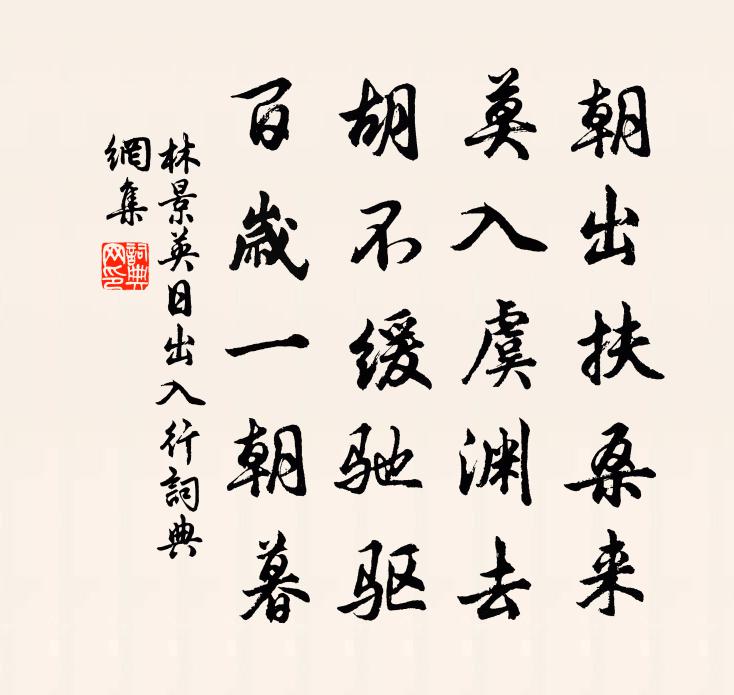 朝出扶桑来
莫入虞渊去
胡不缓驰驱
百歳一朝暮
林景英日出入行詞典
網集
詞典
网印